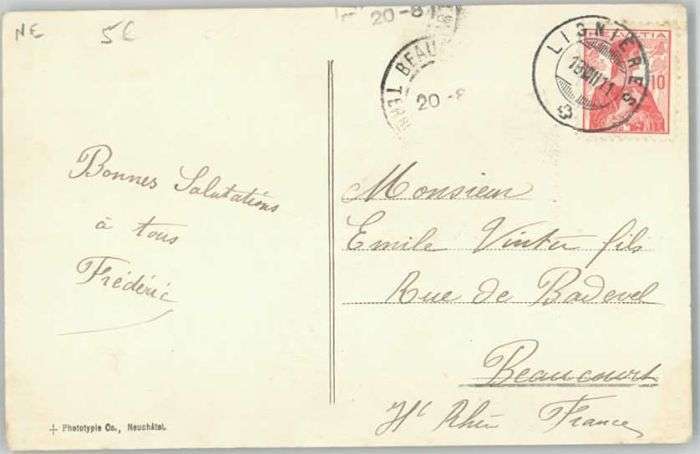 NE
5€
20-8
BEAU
20-8
LIGNIERES
19.VIII.11
HELVETIA
10
Bonnes Salutations
à tous
Frédéric
Monsieur
Emile Vinter fils
Rue de Badevel
Beaucourt
Ht Rhin France
+ Phototypie Co., Neuchâtel.